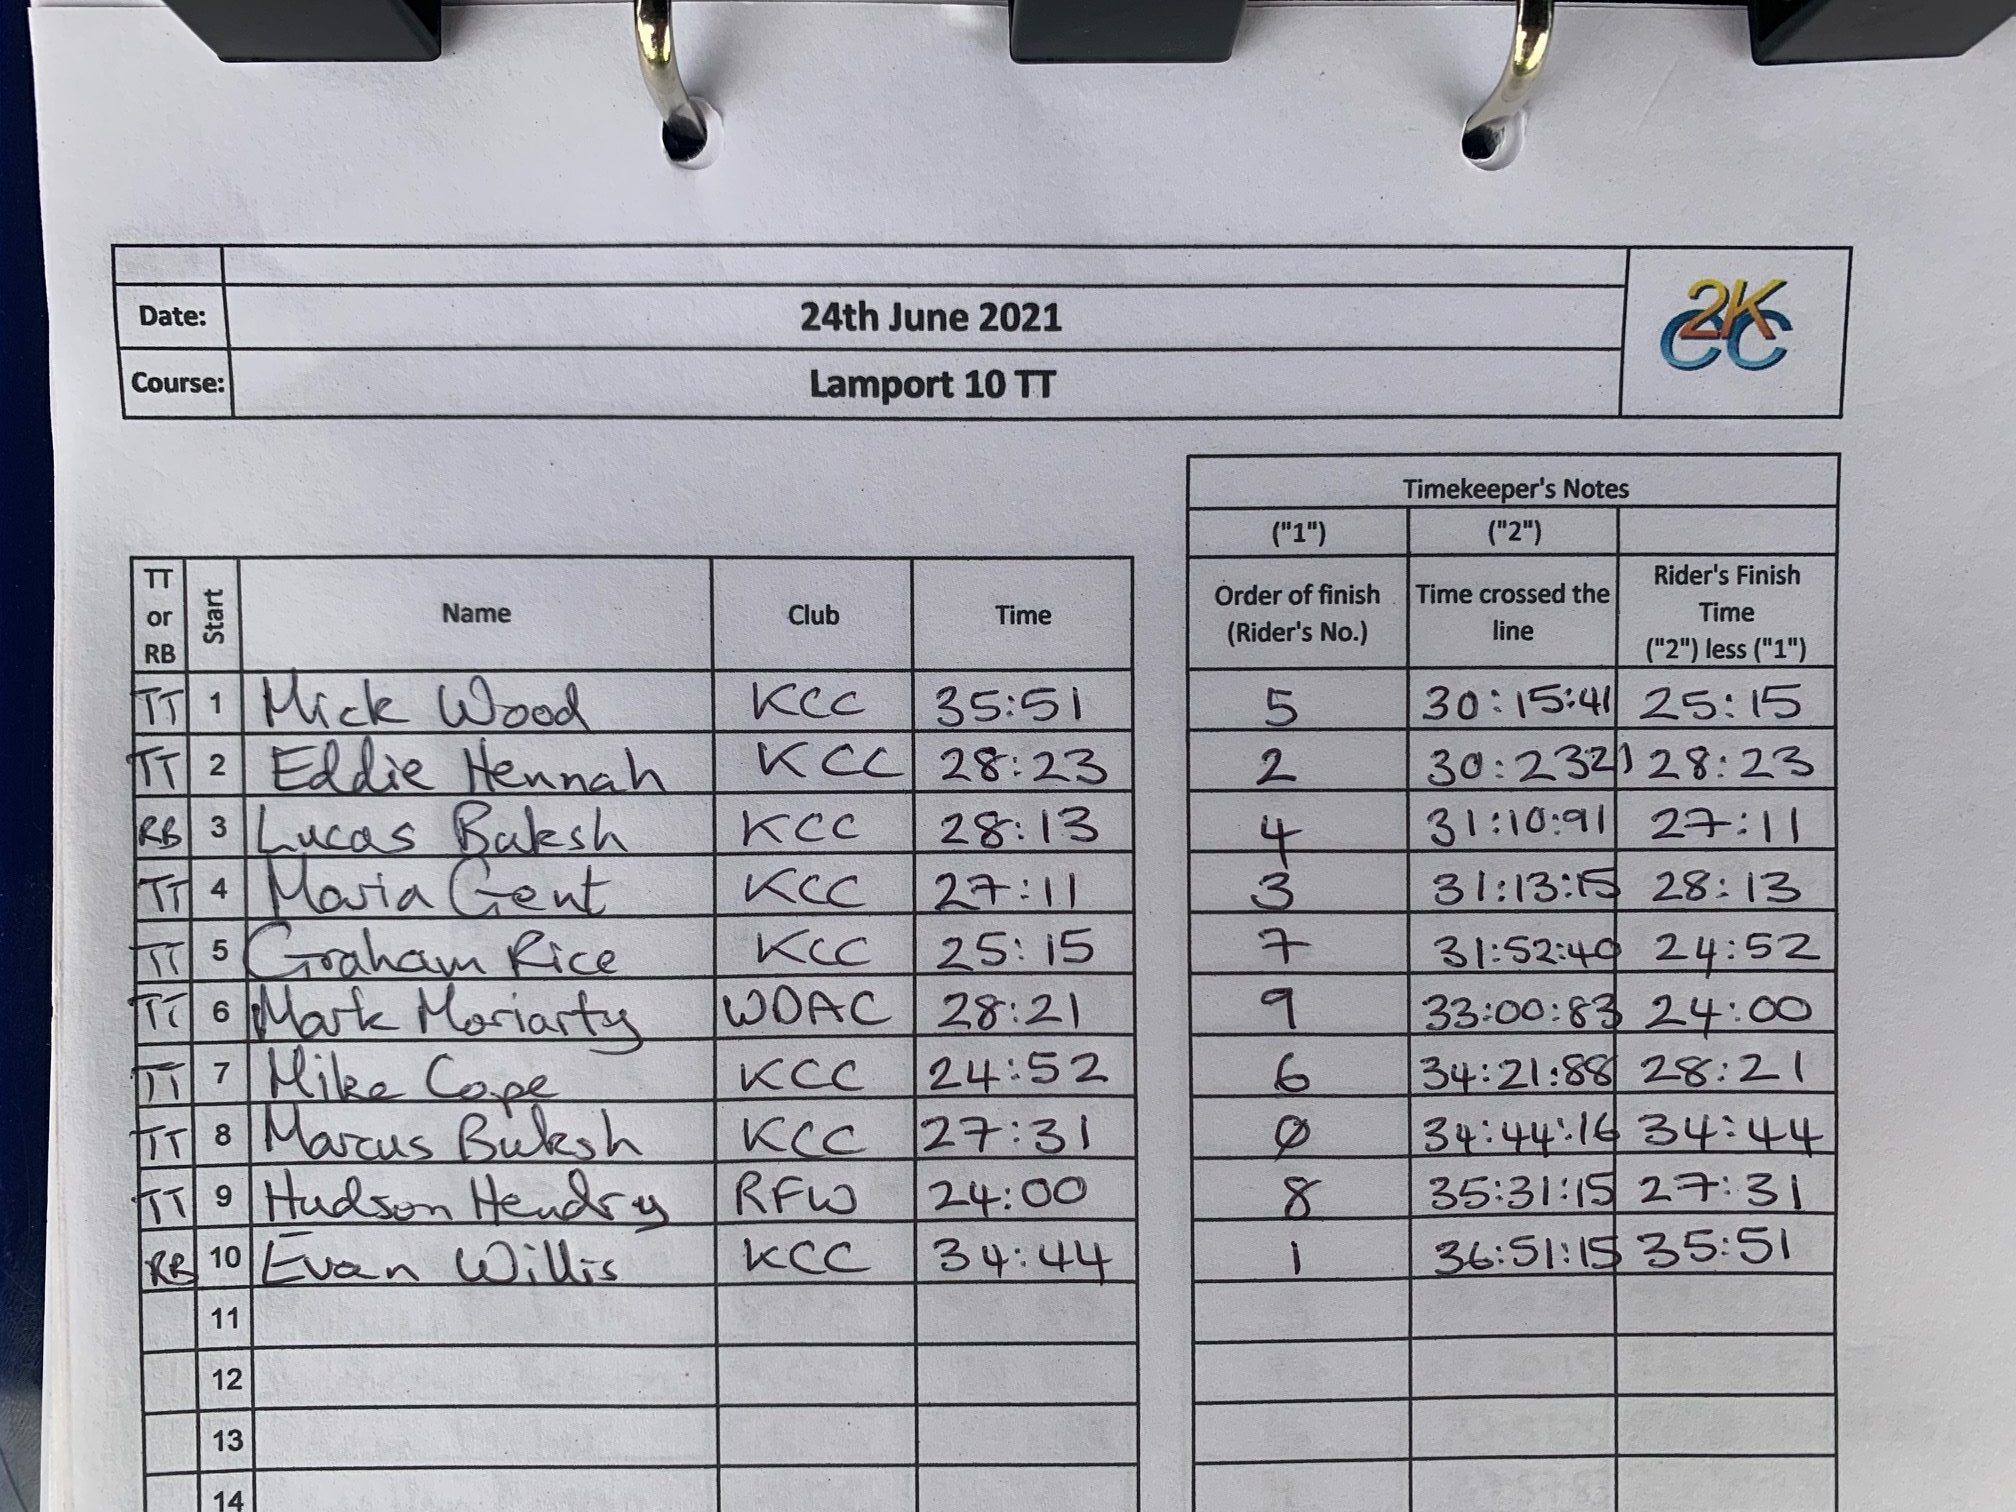 2K
CC
Date: 24th June 2021
Course: Lamport 10 TT
Timekeeper's Notes
("1") ("2")
TT or RB Start Name Club Time Order of finish (Rider's No.) Time crossed the line Rider's Finish Time ("2") less ("1")
TT 1 Mick Wood KCC 35:51 5 30:15:41 25:15
TT 2 Eddie Hennah KCC 28:23 2 30:2321 28:23
RB 3 Lucas Buksh KCC 28:13 4 31:10:91 27:11
TT 4 Maria Gent KCC 27:11 3 31:13:15 28:13
TT 5 Graham Rice KCC 25:15 7 31:52:40 24:52
TT 6 Mark Moriarty WDAC 28:21 9 33:00:83 24:00
TT 7 Mike Cope KCC 24:52 6 34:21:88 28:21
TT 8 Marcus Buksh KCC 27:31 0 34:44:16 34:44
TT 9 Hudson Hendry RFW 24:00 8 35:31:15 27:31
RB 10 Evan Willis KCC 34:44 1 36:51:15 35:51
11
12
13
14